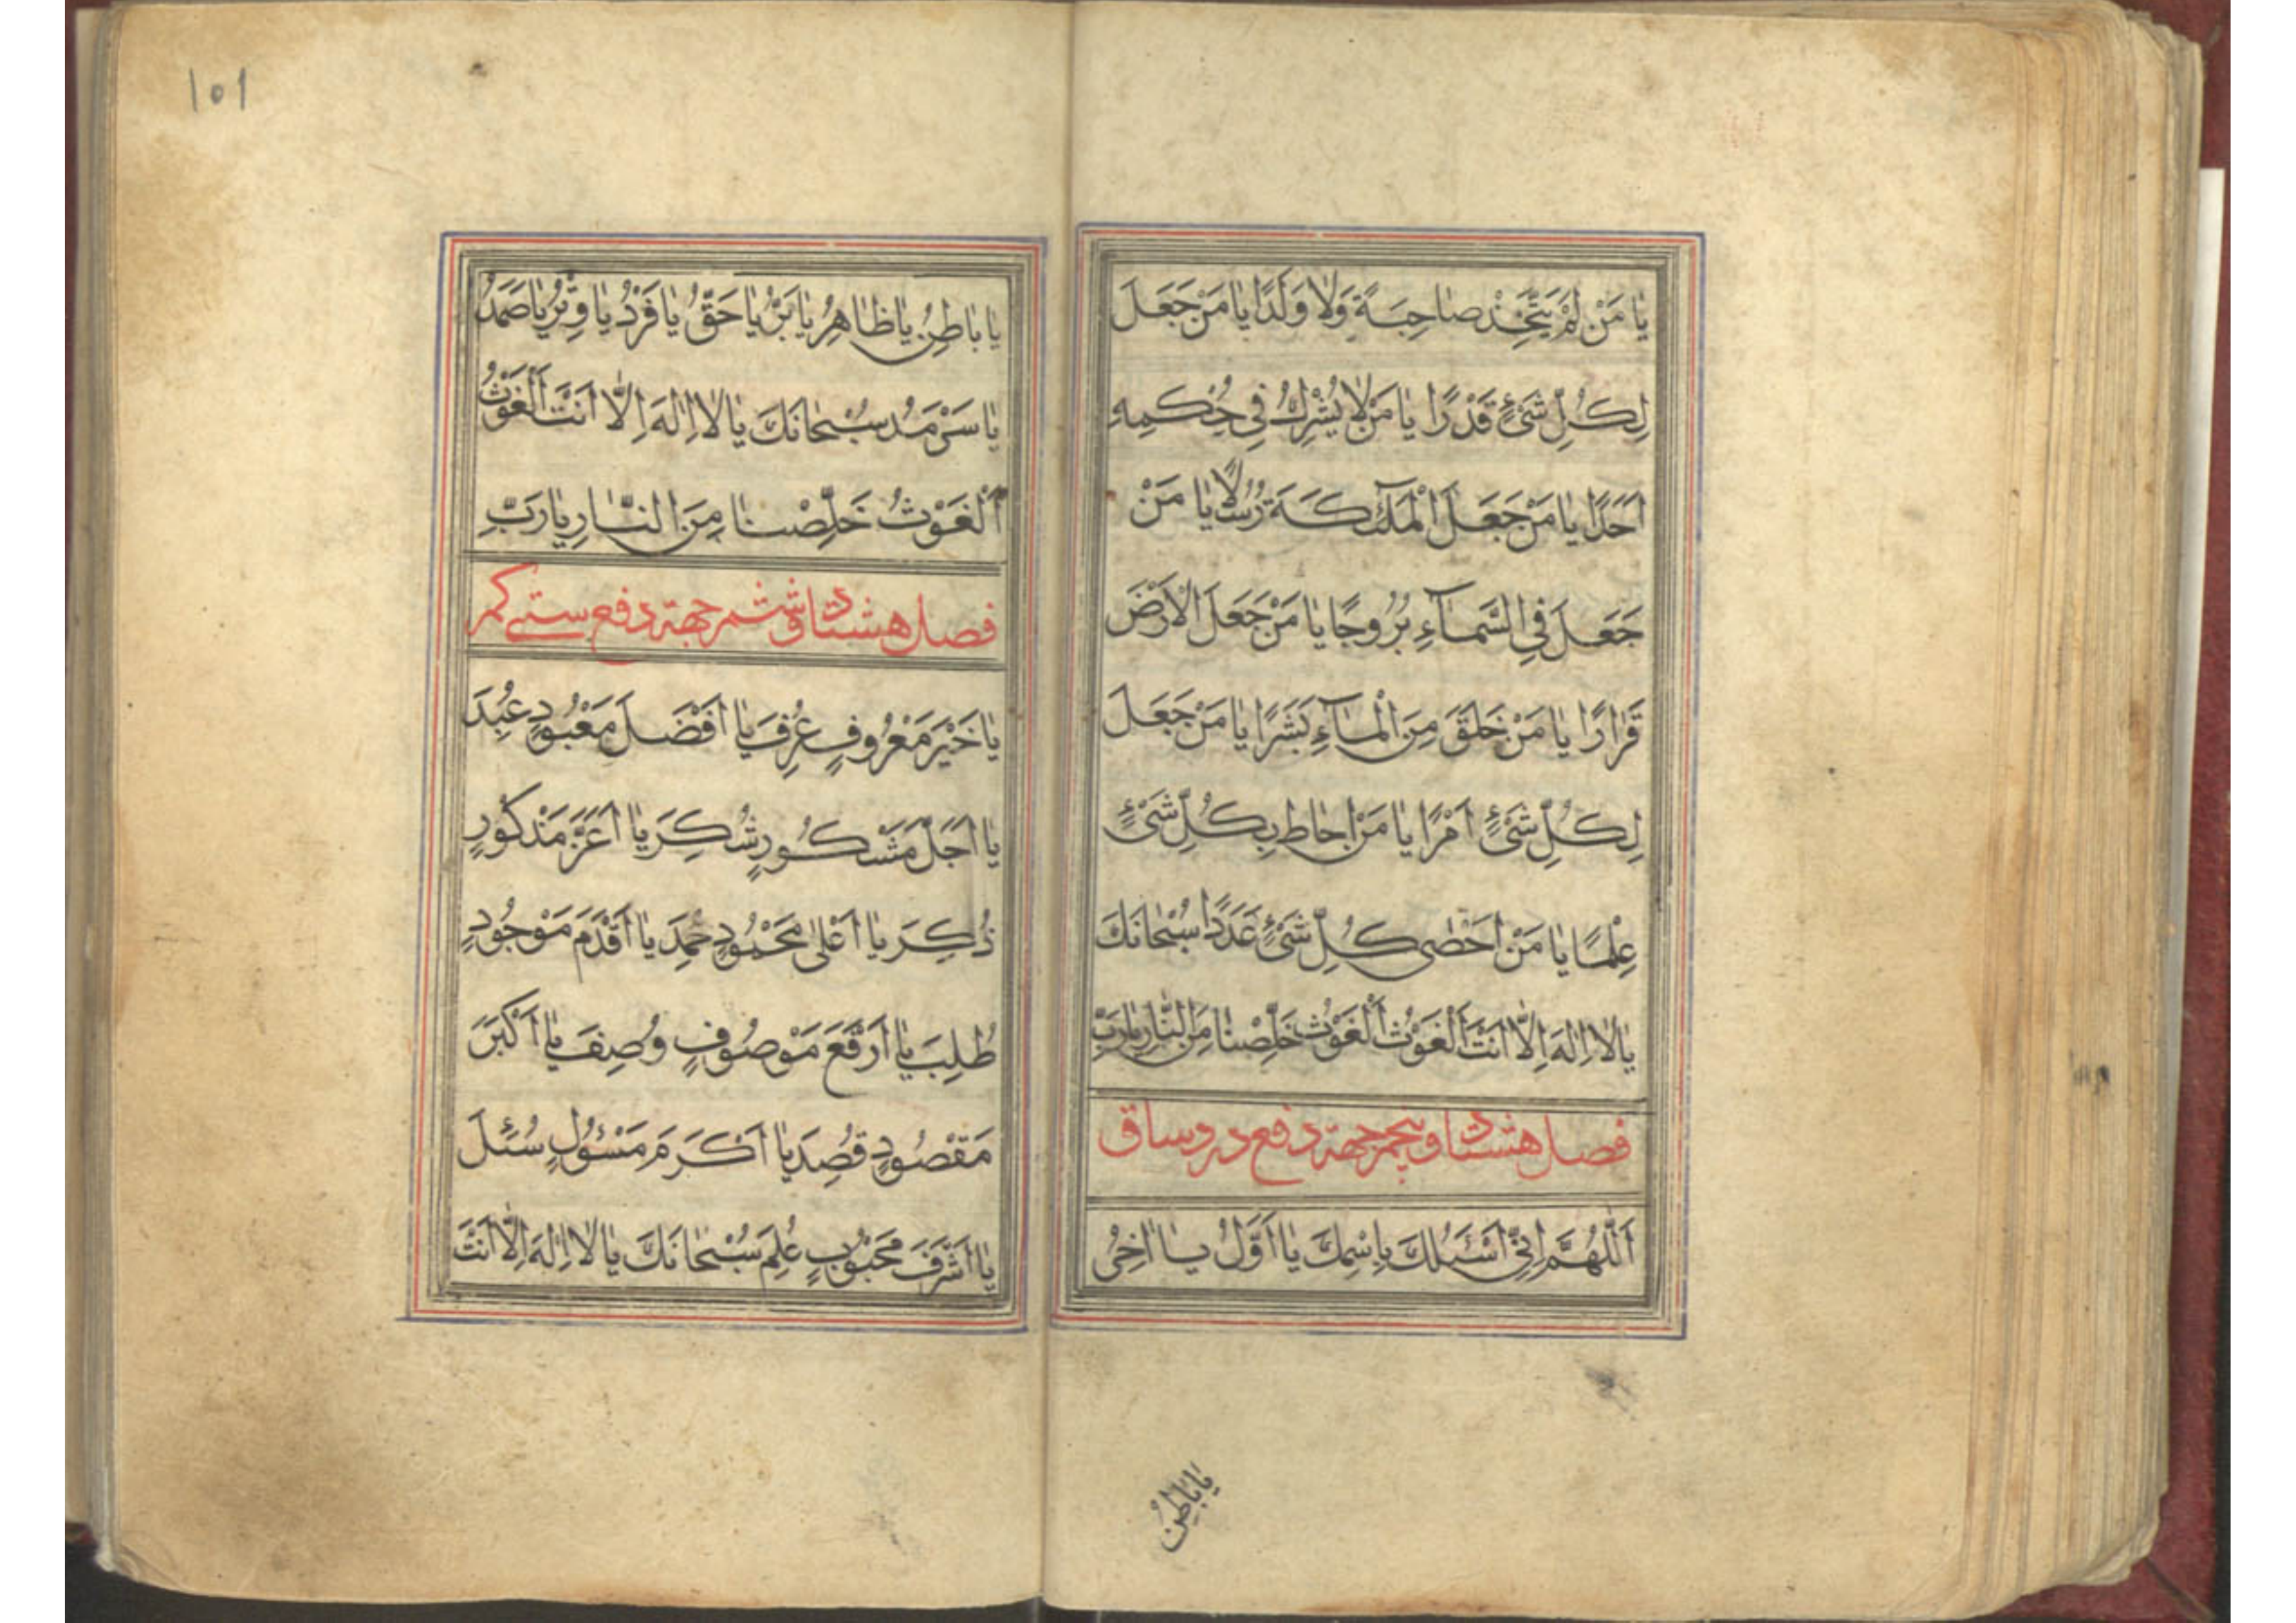 يا مَنْ لَمْ يَتَّخِذْ صاحِبَةً وَلا وَلَدًا يا مَنْ جَعَلَ
لِكُلِّ شَيْءٍ قَدْرًا يا مَنْ لا يُشْرِكُ فِي حُكْمِهِ
اَحَدًا يا مَنْ جَعَلَ الْمَلٰٓئِكَةَ رُسُلًا يا مَنْ
جَعَلَ فِي السَّمآءِ بُرُوجًا يا مَنْ جَعَلَ الْاَرْضَ
قَرارًا يا مَنْ خَلَقَ مِنَ الْمآءِ بَشَرًا يا مَنْ جَعَلَ
لِكُلِّ شَيْءٍ اَمْرًا يا مَنْ اَحاطَ بِكُلِّ شَيْءٍ
عِلْمًا يا مَنْ اَحْصٰى كُلِّ شَيْءٍ عَدَدًا سُبْحانَكَ
يا لا اِلٰهَ اِلَّا اَنْتَ اَلْغَوْثُ اَلْغَوْثُ خَلِّصْنا مِنَ النّارِ يا رَبِّ
فصل هشتاد و پنجم جهة دفع درد ساق
اَللّٰهُمَّ اِنّي اَسْئَلُكَ بِاسْمِكَ يا اَوَّلُ يا اٰخِرُ
يا باطِنُ
101
يا باطِنُ يا ظاهِرُ يا بَرُّ يا حَقُّ يا فَرْدُ يا وِتْرُ يا صَمَدُ
يا سَرْمَدُ سُبْحانَكَ يا لا اِلٰهَ اِلَّا اَنْتَ اَلْغَوْثُ
اَلْغَوْثُ خَلِّصْنا مِنَ النّارِ يا رَبِّ
فصل هشتاد و ششم جهة دفع سستی کمر
يا خَيْرَ مَعْرُوفٍ عُرِفَ يا اَفْضَلَ مَعْبُودٍ عُبِدَ
يا اَجَلَّ مَشْكُورٍ شُكِرَ يا اَعَزَّ مَذْكُورٍ
ذُكِرَ يا اَعْلٰى مَحْمُودٍ حُمِدَ يا اَقْدَمَ مَوْجُودٍ
طُلِبَ يا اَرْفَعَ مَوْصُوفٍ وُصِفَ يا اَكْبَرَ
مَقْصُودٍ قُصِدَ يا اَكْرَمَ مَسْؤُلٍ سُئِلَ
يا اَشْرَفَ مَحْبُوبٍ عُلِمَ سُبْحانَكَ يا لا اِلٰهَ اِلَّا اَنْتَ